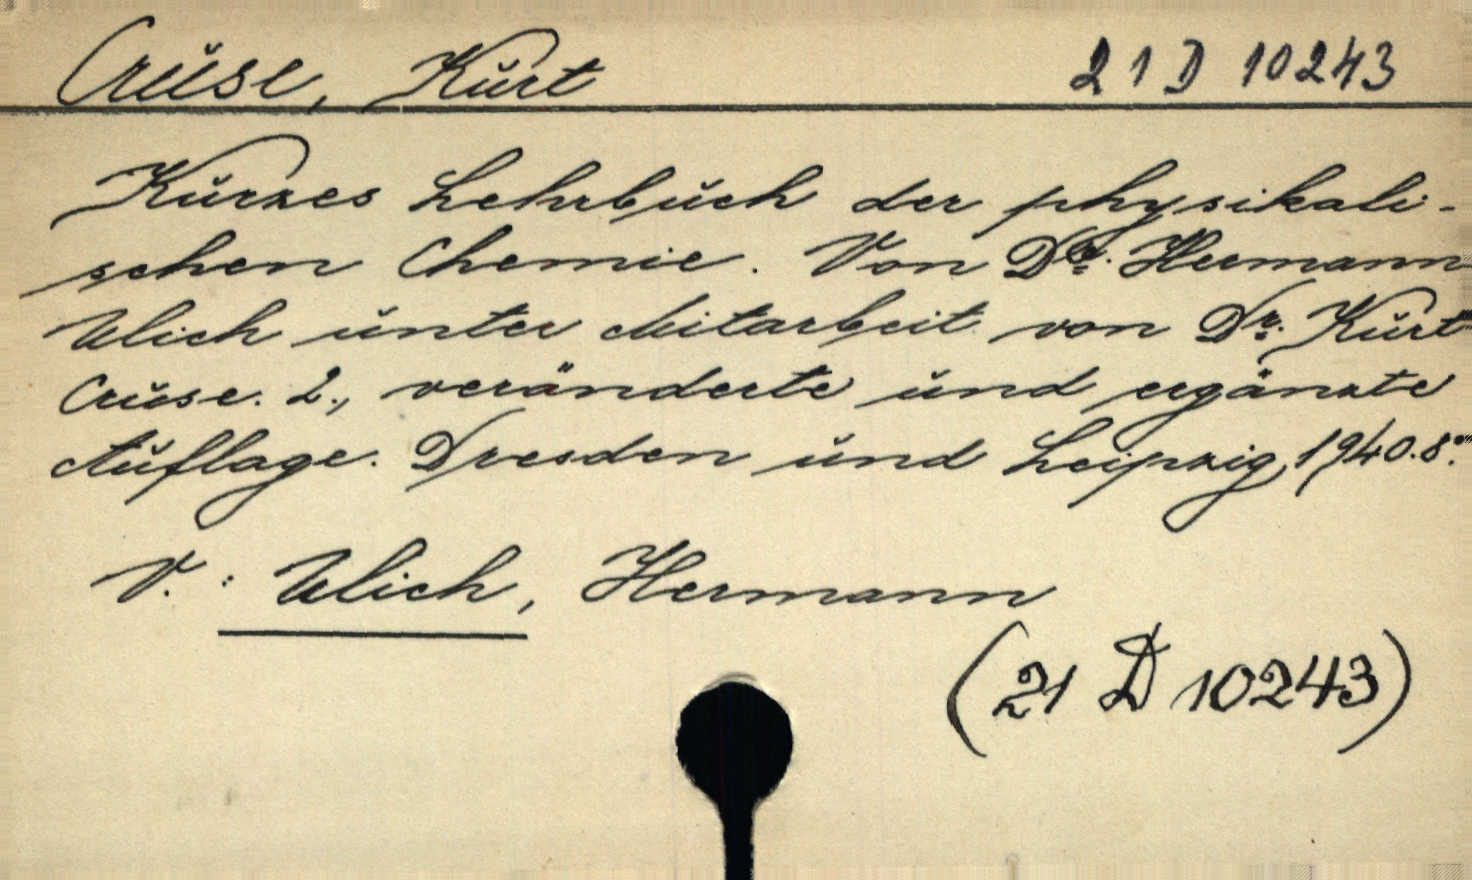 Cruse, Kurt 21 D 10243
Kurzes Lehrbuch der physikali-
schen Chemie. Von Dr. Hermann
Ulich unter Mitarbeit von Dr. Kurt
Cruse. 2., veränderte und ergänzte
Auflage. Dresden und Leipzig, 1940. 8°.
V.: Ulich, Hermann
(21 D 10243)